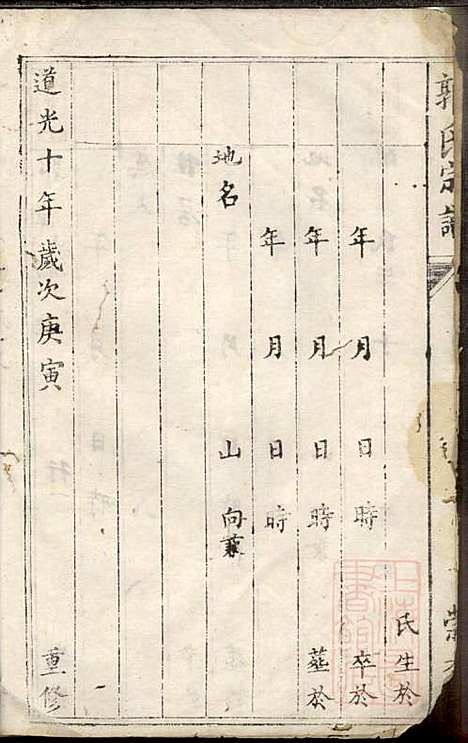 郭氏宗譜
氏生於
年月日時卒於
年月日時塟於
年月日時
地名山向兼
道光十年歲次庚寅重修